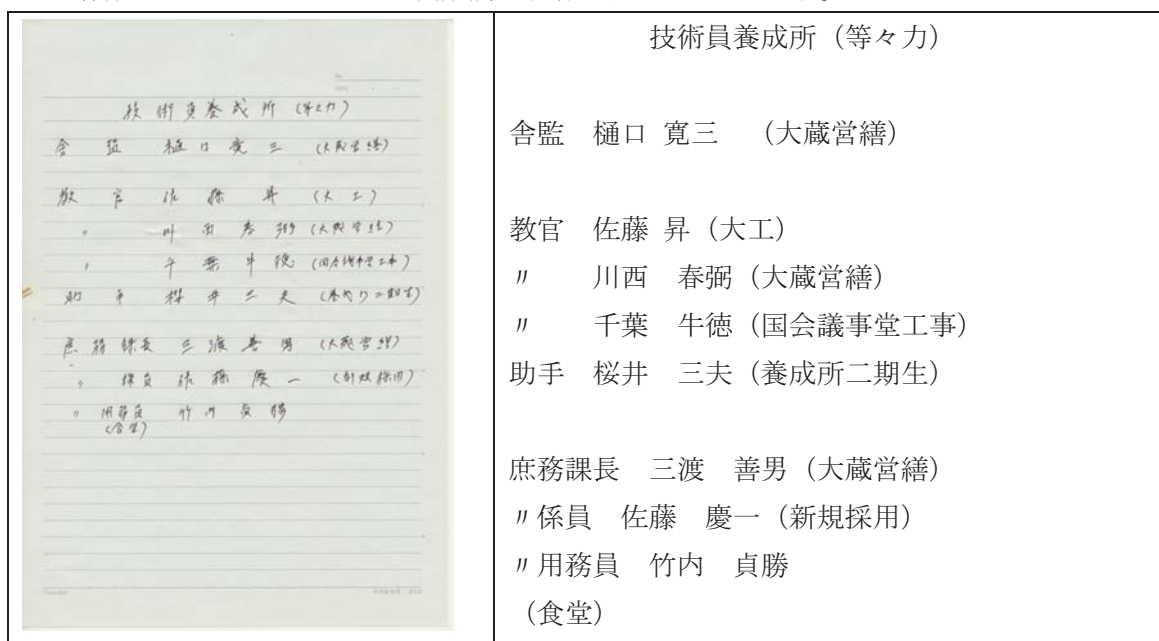 技術員養成所（等々力）
舎監 樋口寛三 （大蔵営繕）
教官 佐藤昇 （大工）
〃 川西春弼 （大蔵営繕）
〃 千葉牛徳 （国会議事堂工事）
助手 桜井三夫 （養成所二期生）
庶務課長 三渡善男 （大蔵営繕）
〃 係員 佐藤慶一 （新規採用）
〃 用務員 竹内貞勝
（食堂）
技術員養成所（等々力）
舎監　樋口 寛三　（大蔵営繕）
教官　佐藤 昇（大工）
〃　　川西　春弼（大蔵営繕）
〃　　千葉　牛徳（国会議事堂工事）
助手　桜井　三夫（養成所二期生）
庶務課長　三渡　善男（大蔵営繕）
〃係員　佐藤　慶一（新規採用）
〃用務員　竹内　貞勝
（食堂）